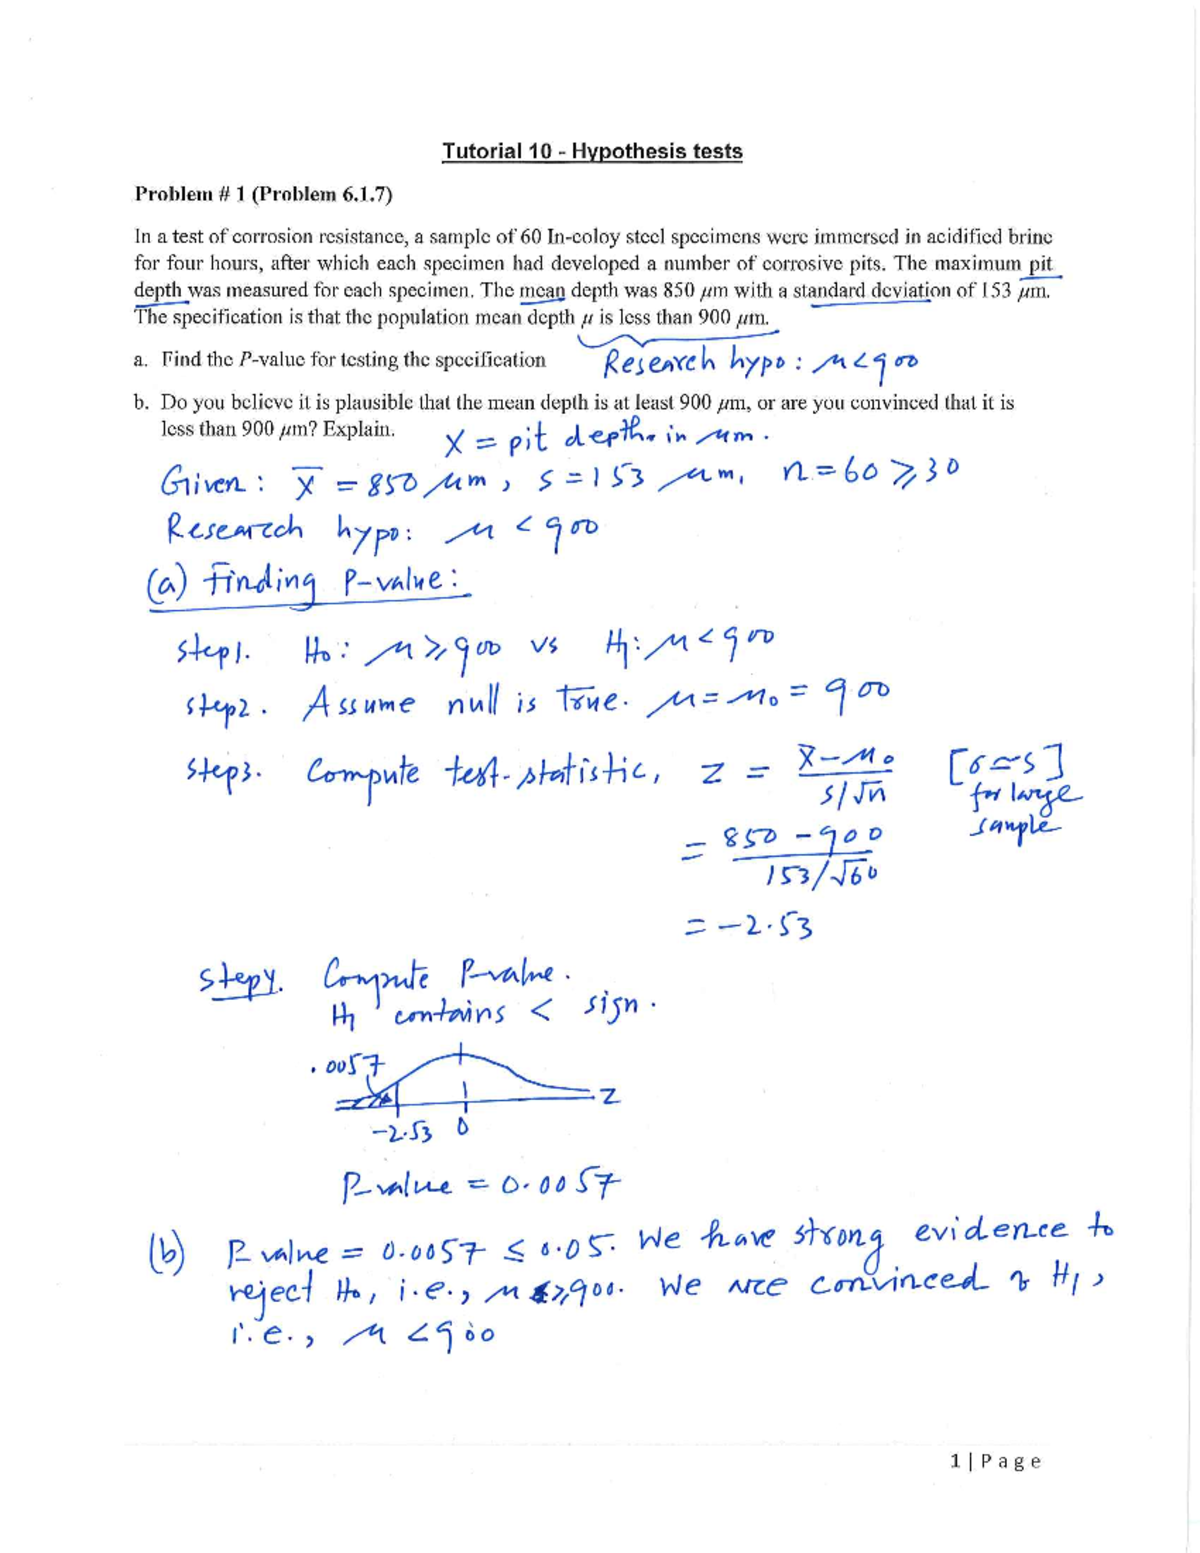 Tutorial 10 - Hypothesis tests
Problem # 1 (Problem 6.1.7)
In a test of corrosion resistance, a sample of 60 In-coloy steel specimens were immersed in acidified brine
for four hours, after which each specimen had developed a number of corrosive pits. The maximum pit
depth was measured for each specimen. The mean depth was 850 μm with a standard deviation of 153 μm.
The specification is that the population mean depth μ is less than 900 μm.
a. Find the P-value for testing the specification
Research hypo: μ<900
b. Do you believe it is plausible that the mean depth is at least 900 μm, or are you convinced that it is
less than 900 μm? Explain.
X = pit depth in μm.
Given: X̄ = 850 μm, s = 153 μm, n = 60 ⩾ 30
Research hypo: μ < 900
(a) Finding P-value:
Step1. H₀: μ ⩾ 900 vs H₁: μ < 900
Step2. Assume null is true. μ = μ₀ = 900
Step3. Compute test-statistic, z = (X̄ - μ₀) / (s/√n) [σ ≃ s]
for large
sample
= (850 - 900) / (153/√60)
= -2.53
Step4. Compute P-value.
H₁ contains < sign.
.0057
Z
-2.53 0
P-value = 0.0057
(b) P-value = 0.0057 ≤ 0.05. We have strong evidence to
reject H₀, i.e., μ ⩾ 900. We are convinced of H₁,
i.e., μ < 900
1 | P a g e